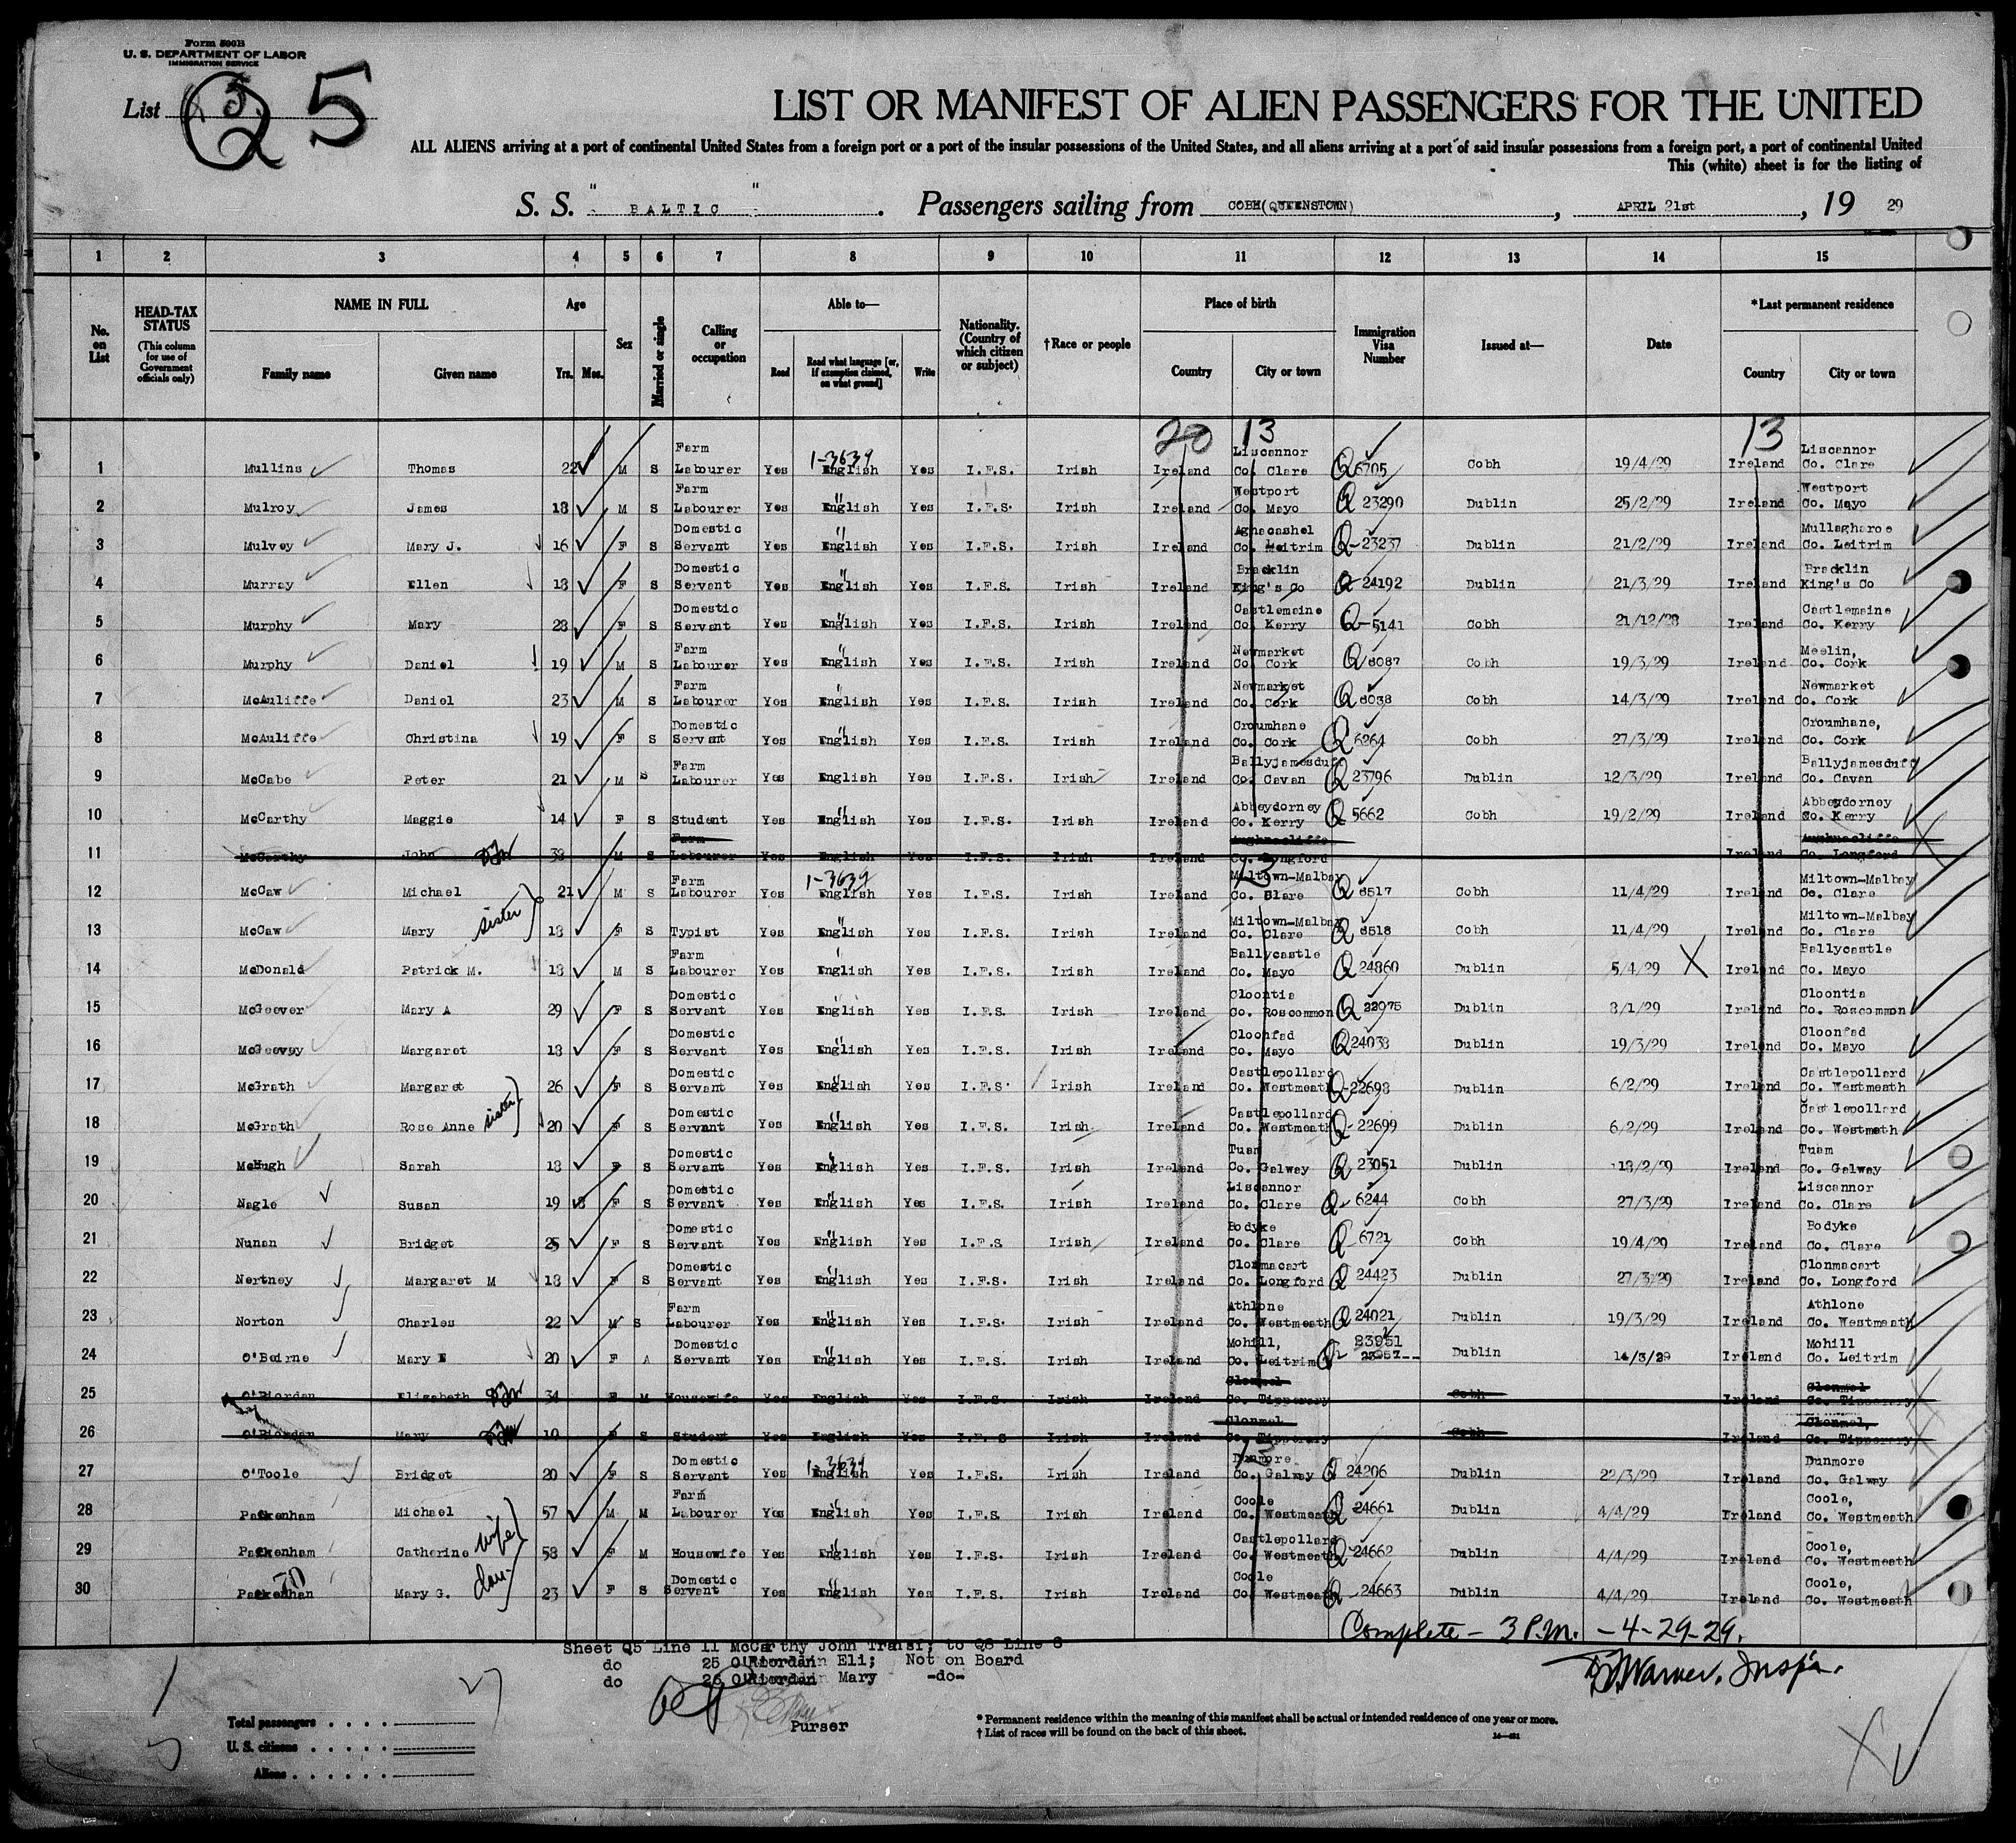 Form 500B
U. S. DEPARTMENT OF LABOR
IMMIGRATION SERVICE
List Q 5
LIST OR MANIFEST OF ALIEN PASSENGERS FOR THE UNITED
ALL ALIENS arriving at a port of continental United States from a foreign port or a port of the insular possessions of the United States, and all aliens arriving at a port of said insular possessions from a foreign port, a port of continental United
This (white) sheet is for the listing of
S. S. " BALTIC " . Passengers sailing from COBH(QUEENSTOWN) , APRIL 21st , 19 29
1 2 3 4 5 6 7 8 9 10 11 12 13 14 15
No. on List
HEAD-TAX STATUS (This column for use of Government officials only)
NAME IN FULL Family name Given name
Age Yrs. Mos.
Sex
Married or single
Calling or occupation
Able to— Read Read what language [or, if exemption claimed, on what ground] Write
Nationality. (Country of which citizen or subject)
†Race or people
Place of birth Country City or town
Immigration Visa Number
Issued at—
Date
*Last permanent residence Country City or town
20 13 13
1 Mullins Thomas 22 M S Farm Labourer Yes 1-3639 English Yes I.F.S. Irish Ireland Liscannor Co. Clare Q 6705 Cobh 19/4/29 Ireland Liscannor Co. Clare
2 Mulroy James 18 M S Farm Labourer Yes " English Yes I.F.S. Irish Ireland Westport Co. Mayo Q 23290 Dublin 25/2/29 Ireland Westport Co. Mayo
3 Mulvey Mary J. 16 F S Domestic Servant Yes " English Yes I.F.S. Irish Ireland Aghacashel Co. Leitrim Q-23237 Dublin 21/2/29 Ireland Mullagharoe Co. Leitrim
4 Murray Ellen 18 F S Domestic Servant Yes " English Yes I.F.S. Irish Ireland Bracklin King's Co Q 24192 Dublin 21/3/29 Ireland Bracklin King's Co
5 Murphy Mary 28 F S Domestic Servant Yes " English Yes I.F.S. Irish Ireland Castlemaine Co. Kerry Q-5141 Cobh 21/12/28 Ireland Castlemaine Co. Kerry
6 Murphy Daniel 19 M S Farm Labourer Yes " English Yes I.F.S. Irish Ireland Newmarket Co. Cork Q 6087 Cobh 19/3/29 Ireland Meelin, Co. Cork
7 McAuliffe Daniel 23 M S Farm Labourer Yes " English Yes I.F.S. Irish Ireland Newmarket Co. Cork Q 6038 Cobh 14/3/29 Ireland Newmarket Co. Cork
8 McAuliffe Christina 19 F S Domestic Servant Yes " English Yes I.F.S. Irish Ireland Croumhane Co. Cork Q 6264 Cobh 27/3/29 Ireland Croumhane, Co. Cork
9 McCabe Peter 21 M S Farm Labourer Yes English Yes I.F.S. Irish Ireland Ballyjamesduff Co. Cavan Q 23796 Dublin 12/3/29 Ireland Ballyjamesduff Co. Cavan
10 McCarthy Maggie 14 F S Student Yes " English Yes I.F.S. Irish Ireland Abbeydorney Co. Kerry Q 5662 Cobh 19/2/29 Ireland Abbeydorney Co. Kerry
11 McCarthy John 38 M S Farm Labourer Yes English Yes I.F.S. Irish Ireland Aughnacliffe Co. Longford Ireland Aughnacliffe Co. Longford
12 McCaw Michael 21 M S Farm Labourer Yes 1-3639 English Yes I.F.S. Irish Ireland 13 Miltown-Malbay Co. Blare Q 6517 Cobh 11/4/29 Ireland Miltown-Malbay Co. Clare
13 McCaw Mary sister 18 F S Typist Yes " English Yes I.F.S. Irish Ireland Miltown-Malbay Co. Clare Q 6518 Cobh 11/4/29 Ireland Miltown-Malbay Co. Clare
14 McDonald Patrick M. 18 M S Farm Labourer Yes English Yes I.F.S. Irish Ireland Ballycastle Co. Mayo Q 24860 Dublin 5/4/29 X Ireland Ballycastle Co. Mayo
15 McGeever Mary A 29 F S Domestic Servant Yes English Yes I.F.S. Irish Ireland Cloontia Co. Roscommon Q 22075 Dublin 8/1/29 Ireland Cloontia Co. Roscommon
16 McGeevey Margaret 18 F S Domestic Servant Yes " English Yes I.F.S. Irish Ireland Cloonfad Co. Mayo Q 24038 Dublin 19/3/29 Ireland Cloonfad Co. Mayo
17 McGrath Margaret 26 F S Domestic Servant Yes English Yes I.F.S. Irish Ireland Castlepollard Co. Westmeath Q-22698 Dublin 6/2/29 Ireland Castlepollard Co. Westmeath
18 McGrath Rose Anne sister 20 F S Domestic Servant Yes " English Yes I.F.S. Irish Ireland Castlepollard Co. Westmeath Q-22699 Dublin 6/2/29 Ireland Castlepollard Co. Westmeth
19 McHugh Sarah 18 F S Domestic Servant Yes English Yes I.F.S. Irish Ireland Tuam Co. Galway Q 23051 Dublin 18/2/29 Ireland Tuam Co. Galway
20 Nagle Susan 19 8 F S Domestic Servant Yes " English Yes I.F.S. Irish Ireland Liscannor Co. Clare Q-6244 Cobh 27/3/29 Ireland Liscannor Co. Clare
21 Nunan Bridget 25 F S Domestic Servant Yes " English Yes I.F.S Irish Ireland Bodyke Co. Clare Q-6721 Cobh 19/4/29 Ireland Bodyke Co. Clare
22 Nertney Margaret M 18 F S Domestic Servant Yes " English Yes I.F.S. Irish Ireland Clonmacart Co. Longford Q 24423 Dublin 27/3/29 Ireland Clonmacart Co. Longford
23 Norton Charles 22 M S Farm Labourer Yes " English Yes I.F.S. Irish Ireland Athlone Co. Westmeath Q 24021 Dublin 19/3/29 Ireland Athlone Co. Westmeath
24 O'Beirne Mary E 20 F A Domestic Servant Yes " English Yes I.F.S. Irish Ireland Mohill, Co. Leitrim Q 23951 Dublin 14/3/29 Ireland Mohill Co. Leitrim
25 O'Riordan Elizabeth 34 F M Housewife Yes English Yes I.F.S. Irish Ireland Clonmel Co. Tipperary Cobh Ireland Clonmel Co. Tipperary
26 O'Riordan Mary 10 F S Student Yes English Yes I.F.S Irish Ireland Clonmel Co. Tipperary Cobh Ireland Clonmel, Co. Tipperary
27 O'Toole Bridget 20 F S Domestic Servant Yes 1-3639 English Yes I.F.S. Irish Ireland 13 Dunmore Co. Galway Q 24206 Dublin 22/3/29 Ireland Dunmore Co. Galway
28 Pakenham Michael 57 M M Farm Labourer Yes " English Yes I.F.S. Irish Ireland Coole Co. Westmeath Q 24661 Dublin 4/4/29 Ireland Coole, Co. Westmeath
29 Pakenham Catherine wife 58 F M Housewife Yes " English Yes I.F.S. Irish Ireland Castlepollard Co. Westmeath Q 24662 Dublin 4/4/29 Ireland Coole, Co. Westmeath
30 Pakenhan Mary G. dau- 23 F S Domestic Servant Yes " English Yes I.F.S. Irish Ireland Coole Co. Westmeath Q 24663 Dublin 4/4/29 Ireland Coole, Co. Westmeath
Complete - 3 P.M. - 4-29-29.
Sheet Q5 Line 11 McCarthy John Transf; to Q8 Line 8
do 25 O'Riordan Eli; Not on Board
do 26 O'Riordan Mary -do-
Warner, Insp'r.
Purser
Total passengers . . . .
U. S. citizens . . . . .
Aliens . . . . . .
* Permanent residence within the meaning of this manifest shall be actual or intended residence of one year or more.
† List of races will be found on the back of this sheet.